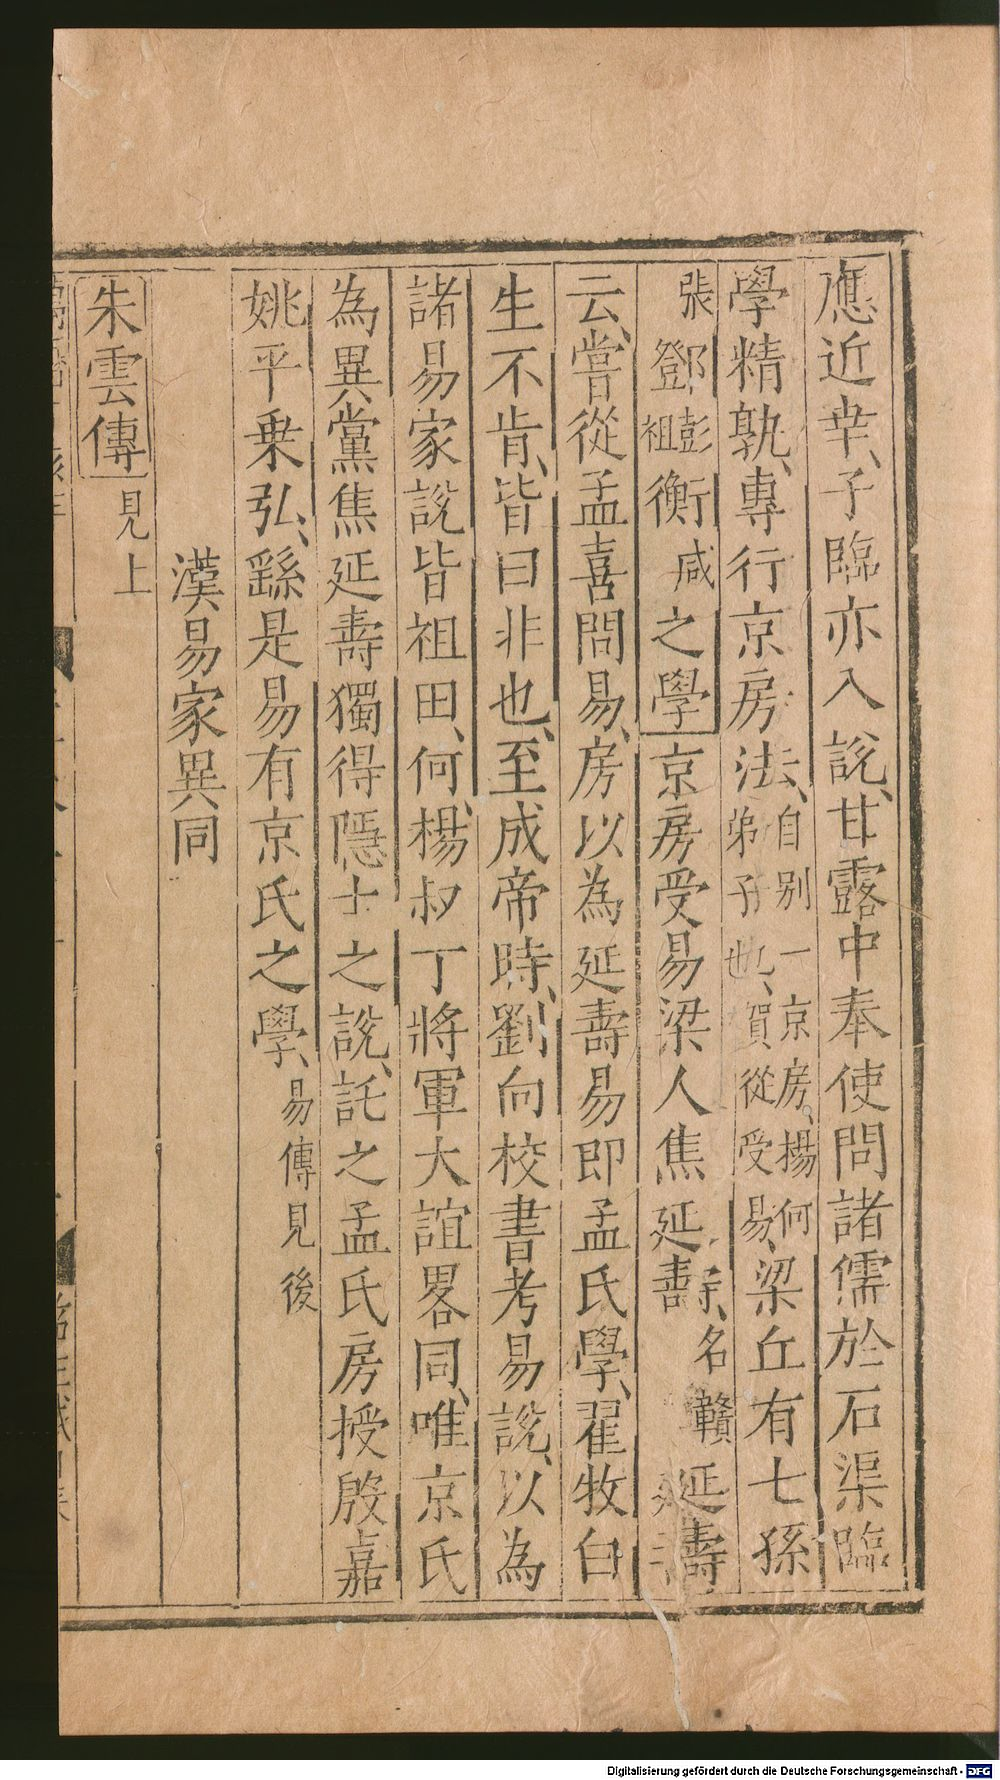 應近幸、子臨亦入說、甘露中奉使問諸儒於石渠臨
學精孰、專行京房法、自別一京房。楊何弟子也、賀從受易、梁丘有七孫
張鄧彭祖衡咸之學京房受易梁人焦延壽、名贛延壽
云、嘗從孟喜問易、房以為延壽易即孟氏學、翟牧白
生不肯、皆曰非也、至成帝時、劉向校書考易說、以為
諸易家說皆祖田、何、楊叔丁將軍大誼畧同、唯京氏
為異黨焦延壽獨得隱士之說、託之孟氏房授殷嘉
姚平乗弘、繇是易有京氏之學、易傳見後
漢易家異同
朱雲傳見上
Digitalisierung gefördert durch die Deutsche Forschungsgemeinschaft - DFG